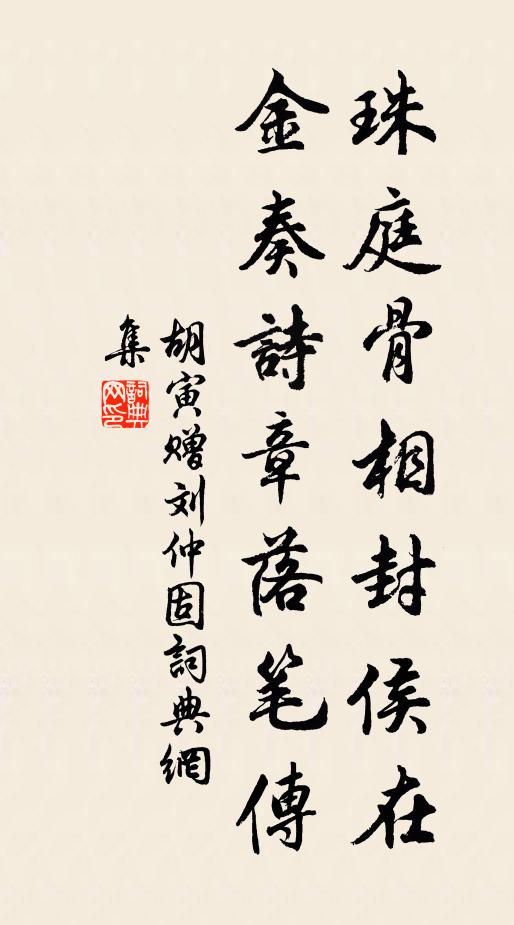 珠庭骨相封侯在
金奏詩章落笔傳
胡寅赠刘仲固詞典網
集
詞典
网印